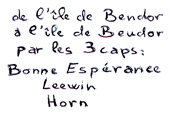 de l'île de Bendor
à l'île de Beudor
par les 3 caps:
Bonne Espérance
Leewin
Horn